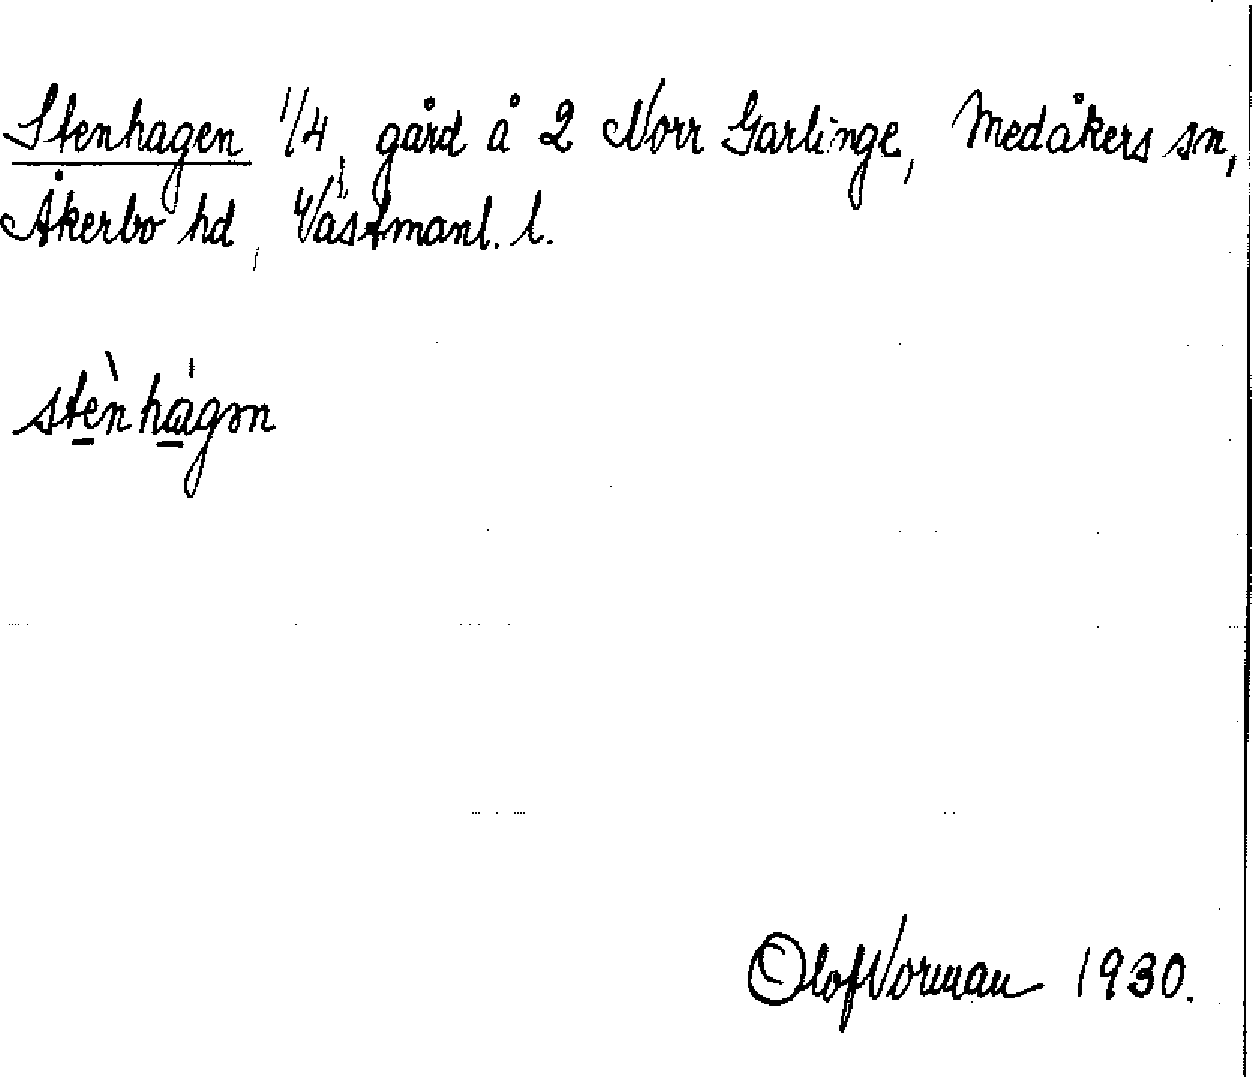 Stenhagen 1/4, gård å 2 Norr Garlinge, Medåkers sn,
Åkerbo hd, Västmanl. l.
stè̱nha̱̍gən
Olof Norman 1930.